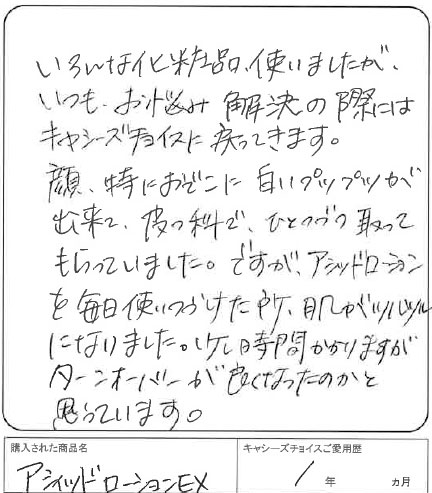 いろんな化粧品、使いましたが、
いつも、お悩み解決の際には
キャシーズチョイスに戻ってきます。
顔、特におでこに白いプツプツが
出来て、皮フ科で、ひとつづつ取って
もらっていました。ですが、アシッドローション
を毎日使いつづけた所、肌がツルツル
になりました。少し時間かかりますが
ターンオーバーが良くなったのかと
思っています。
購入された商品名
キャシーズチョイスご愛用歴
アシィッドローションEX
1 年 ヵ月